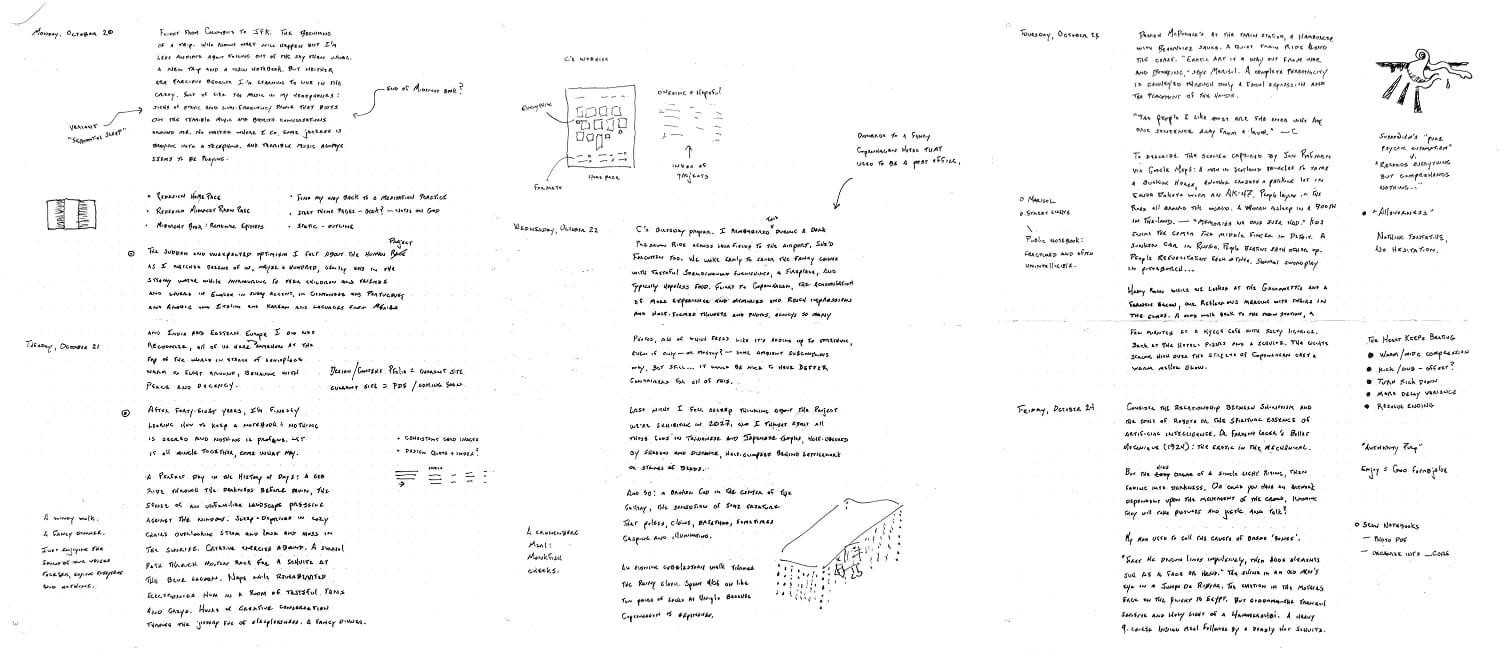 Monday, October 20
Flight from Columbus to JFK. The beginning
of a trip. Who knows what will happen but I'm
less anxious about falling out of the sky than usual.
A new trip and a new notebook. But neither
are precious because I'm learning to live in the
crazy. Sort of like the music in my headphones:
of static and low-frequency drone that blots
out the terrible music and conversations
around me. No matter where I go, some jackass is
barking into a telephone, and terrible music always
seems to be playing.
End of Midnight Book?
Variant
"Sequential Sleep"
• Redesign Home Page
• Redesign Midnight Radio Page
• Midnight Book: Episodes
• Find my way back to a meditation practice
• Start Pages – Book? – Notes on God
• Static – Outline
The sudden and unexpected optimism I felt about the Human Race
Project
as I watched dozens of us, maybe a hundred, gently in the
steamy water while murmuring to their children and friends
and lovers in English in every accent, in Cantonese and Portuguese
and Arabic and Italian and Korean and languages from Africa
and India and Eastern Europe I did not
recognize, all of us here somewhere at the
top of the world in search of someplace
warm to float around, behaving with
peace and decency.
Tuesday, October 21
Design/Content = Current Site
Current Site = PDF / Coming Soon
After forty-eight years, I'm finally
learning how to keep a notebook: nothing
is sacred and nothing is profane. Let
it all mingle together, come what may.
• Consistent Grid Images
• Design Quote + Index?
Index
A perfect day in the history of days: A
ride through the darkness before dawn, the
sense of an unfamiliar landscape pressing
against the windows. Sleep-deprived in cozy
chairs overlooking steam and lava and moss in
the sunrise. Creative energies abound. A surreal
path through molten rock for a at
the Blue Lagoon. Naps while
electronics hum in a room of tasteful tans
and grays. Hours of creative conversation
through the jittery fog of sleeplessness. A fancy dinner.
A windy walk.
A fancy dinner.
Just enjoying the
sound of our voices
together, saying everything
and nothing.
C's Website
Everything
Formats
Home Page
Ongoing + Hopeful
Index of
Projects
Damages to a fancy
Copenhagen hotel that
used to be a post office.
Wednesday, October 22
C's birthday program. I remembered this during a dark
ride across lava fields to the airport. She'd
forgotten too. We wake early to the fancy lounge
with tasteful Scandinavian furnishings, a fireplace, and
typically hopeless food. Flight to Copenhagen, the accumulation
of more experience and memories and rough impressions
and half-formed thoughts and photos, always so many
photos, all of which feels like it's adding up to something,
even if only — or mostly? — some ambient subconscious
way. But still... it would be nice to have better
containers for all of this.
Last night I fell asleep thinking about the project
we're exhibiting in 2027, and I thought about all
those gods in Taiwanese and Japanese temples, half-obscured
by shadows and distance, half-glimpsed behind latticework
or strands of beads...
And so: a broken god in the center of the
gallery, the sensation of some creature
that pulses, glows, breathing, sometimes
gasping and illuminating.
An evening cobblestone walk through
the rainy gloom. Spent $126 on like
two pairs of socks at Uniqlo because
Copenhagen is expensive.
A Cronenberg
meal:
Monkfish
cheeks.
Thursday, October 23
Danish McDonald's at the train station, a hamburger
with Bearnaise sauce. A quiet train ride along
the coast. "Erotic art is a way out from war
and bombing," says Marisol. A complete personality
is conveyed through only a facial expression and
the placement of the hands.
"The people I like most are the ones who are
one sentence away from a laugh." — C
To describe the scenes captured by Jon Rafman
via Google Maps: A man in Scotland struggles to tame
a bucking horse, another crosses a parking lot in
South Dakota with an AK-47. People laying in the
road all around the world. A woman asleep in a booth
in Thailand. — "Memories no one ever had." Kids
giving the camera the middle finger in Detroit. A
sunken car in Russia. People beating each other up.
People resuscitating each other. Samurai swordplay
in Pittsburgh...
Heavy rain while we looked at the Giacomettis and a
Francis Bacon, our reflections merging with theirs in
the glass. A long walk back to the train station, a
few minutes at a Kyoto Café with salty licorice.
Back at the hotel: pizzas and a schvitz. The lights
strung high over the streets of Copenhagen cast a
warm mellow glow.
○ Marisol
○ Starry Lights
Public Notebook:
Fractured and often
unintelligible.
Surrealism's "pure
psychic automatism"
"Records everything
but comprehends
nothing..."
• "Alloverness"
Nothing tentative,
no hesitation.
The Heart Keeps Beating
● Warm/Wide Compression
● Kick/Dub – Offset?
● Turn Kick Down
● More Delay Variance
● Resolve Ending
Friday, October 24
Consider the relationship between Shintoism and
the souls of robots or the spiritual essence of
artificial intelligence. Or Fernand Leger's Ballet
Mecanique (1924): the erotic in the mechanical.
But the idea of a single light rising, then
fading into darkness. Or could you have an artwork
dependent upon the movement of the crowd, hoping
they will take pictures and jostle and talk?
My mom used to call the crusts of bread 'bones'.
"First he draws lines impulsively, then adds elements
such as a face or hand." The shine in an old men's
eye in a Jusepe de Ribera. The caution in the mother's
face on the flight to Egypt. But goddamn the tranquil
sorrow and holy light of a Hammershøi. A heavy
9-course Indian meal followed by a deadly hot schvitz.
"Authority Fury"
Enjoy = God Fornøjelse
○ Scan Notebooks
— Photo PDF
— Organize into __Core